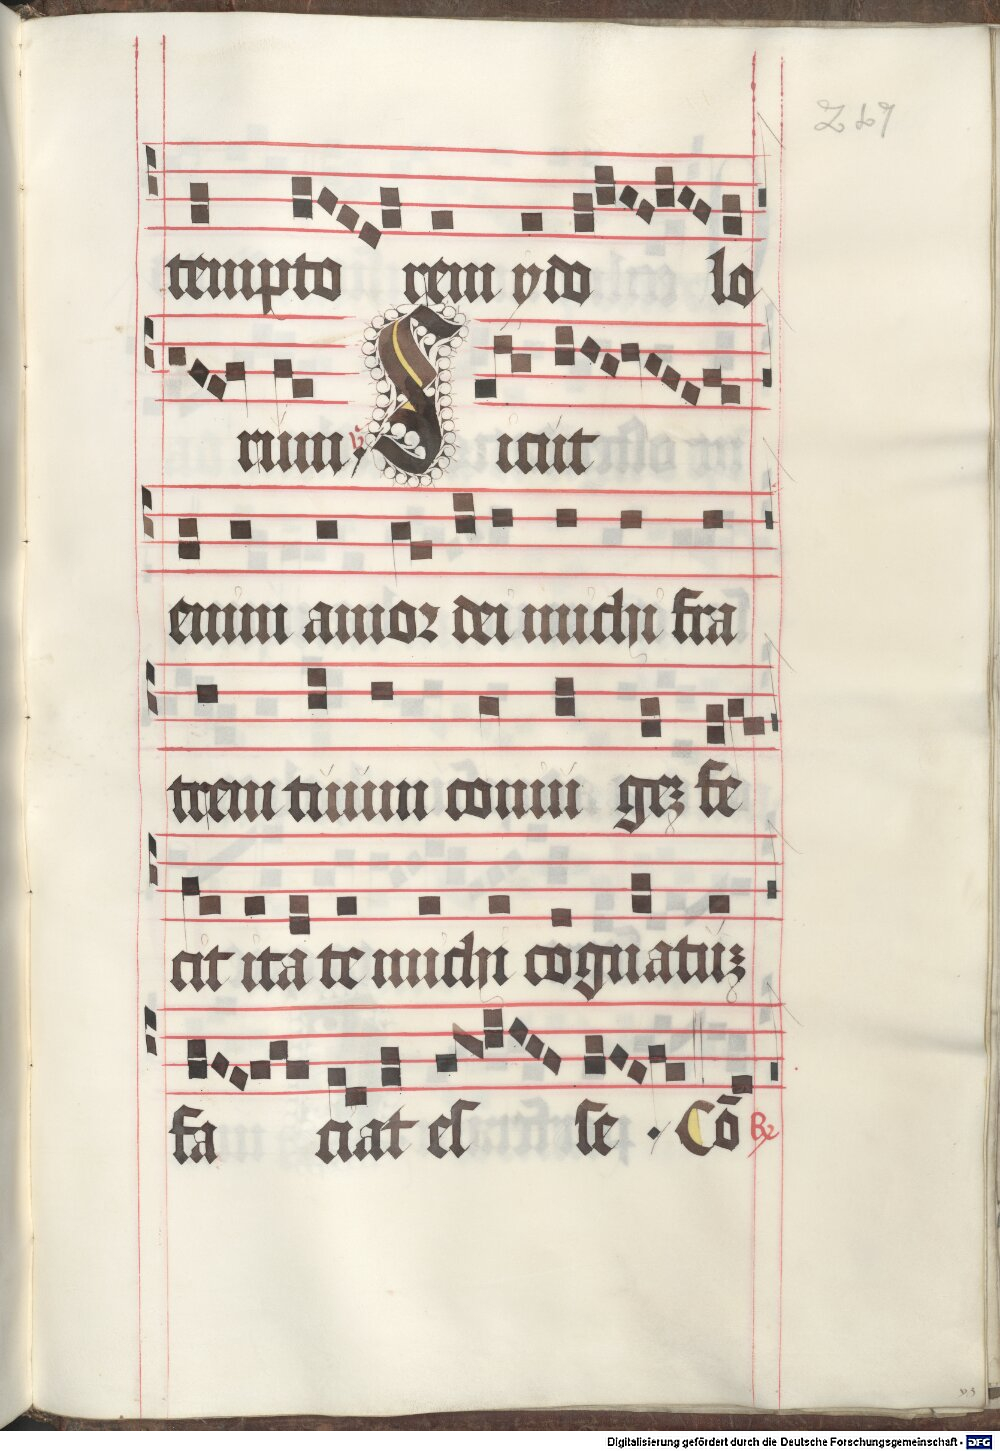 247
tempto rem ydo lo
rum. v Sicut
enim amor dei michi fra
trem tuum coniu gez fe
cit ita te michi cognatuz
fa ciat es se . Cō R
Digitalisierung gefördert durch die Deutsche Forschungsgemeinschaft - DFG